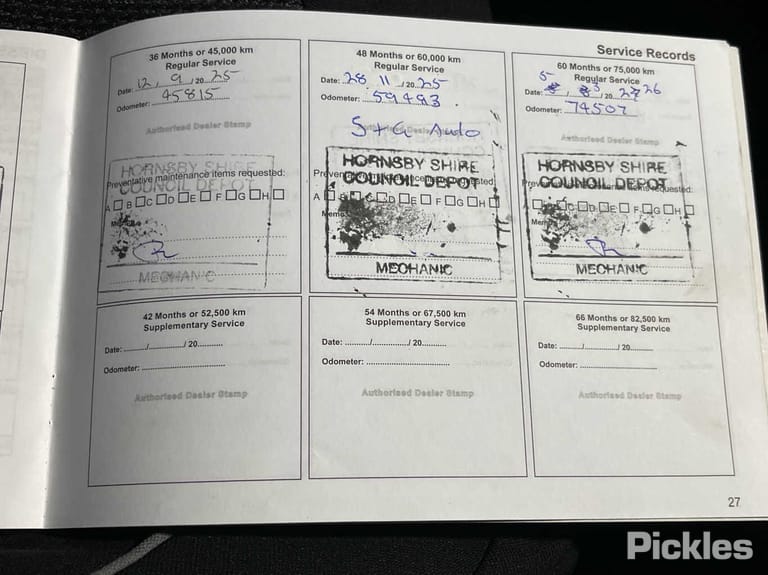 Service Records
36 Months or 45,000 km
Regular Service
Date: 12 / 9 / 20 25
Odometer: 45815
Authorised Dealer Stamp
HORNSBY SHIRE
Preventative maintenance items requested:
COUNCIL DEPOT
A B C D E F G H
Memo:
MECHANIC
48 Months or 60,000 km
Regular Service
Date: 28 / 11 / 20 25
Odometer: 59493
Authorised Dealer Stamp
HORNSBY SHIRE
COUNCIL DEPOT
A B C D E F G H
Memo:
MECHANIC
60 Months or 75,000 km
Regular Service
Date: 5 / 3 / 20 26
Odometer: 74507
Authorised Dealer Stamp
HORNSBY SHIRE
COUNCIL DEPOT
A B C D E F G H
Memo:
MECHANIC
42 Months or 52,500 km
Supplementary Service
Date: ......../............/ 20.........
Odometer: ................................
Authorised Dealer Stamp
54 Months or 67,500 km
Supplementary Service
Date: ......../............/ 20.........
Odometer: ................................
Authorised Dealer Stamp
66 Months or 82,500 km
Supplementary Service
Date: ......../............/ 20.........
Odometer: ................................
Authorised Dealer Stamp
27
Pickles